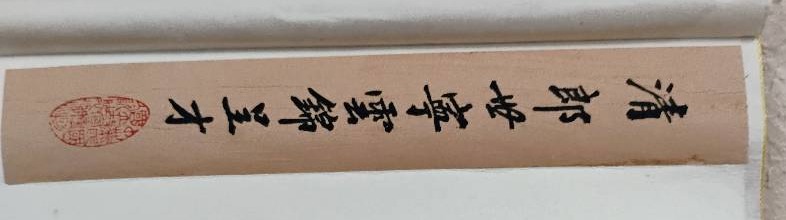 清郎世寧雲錦呈才